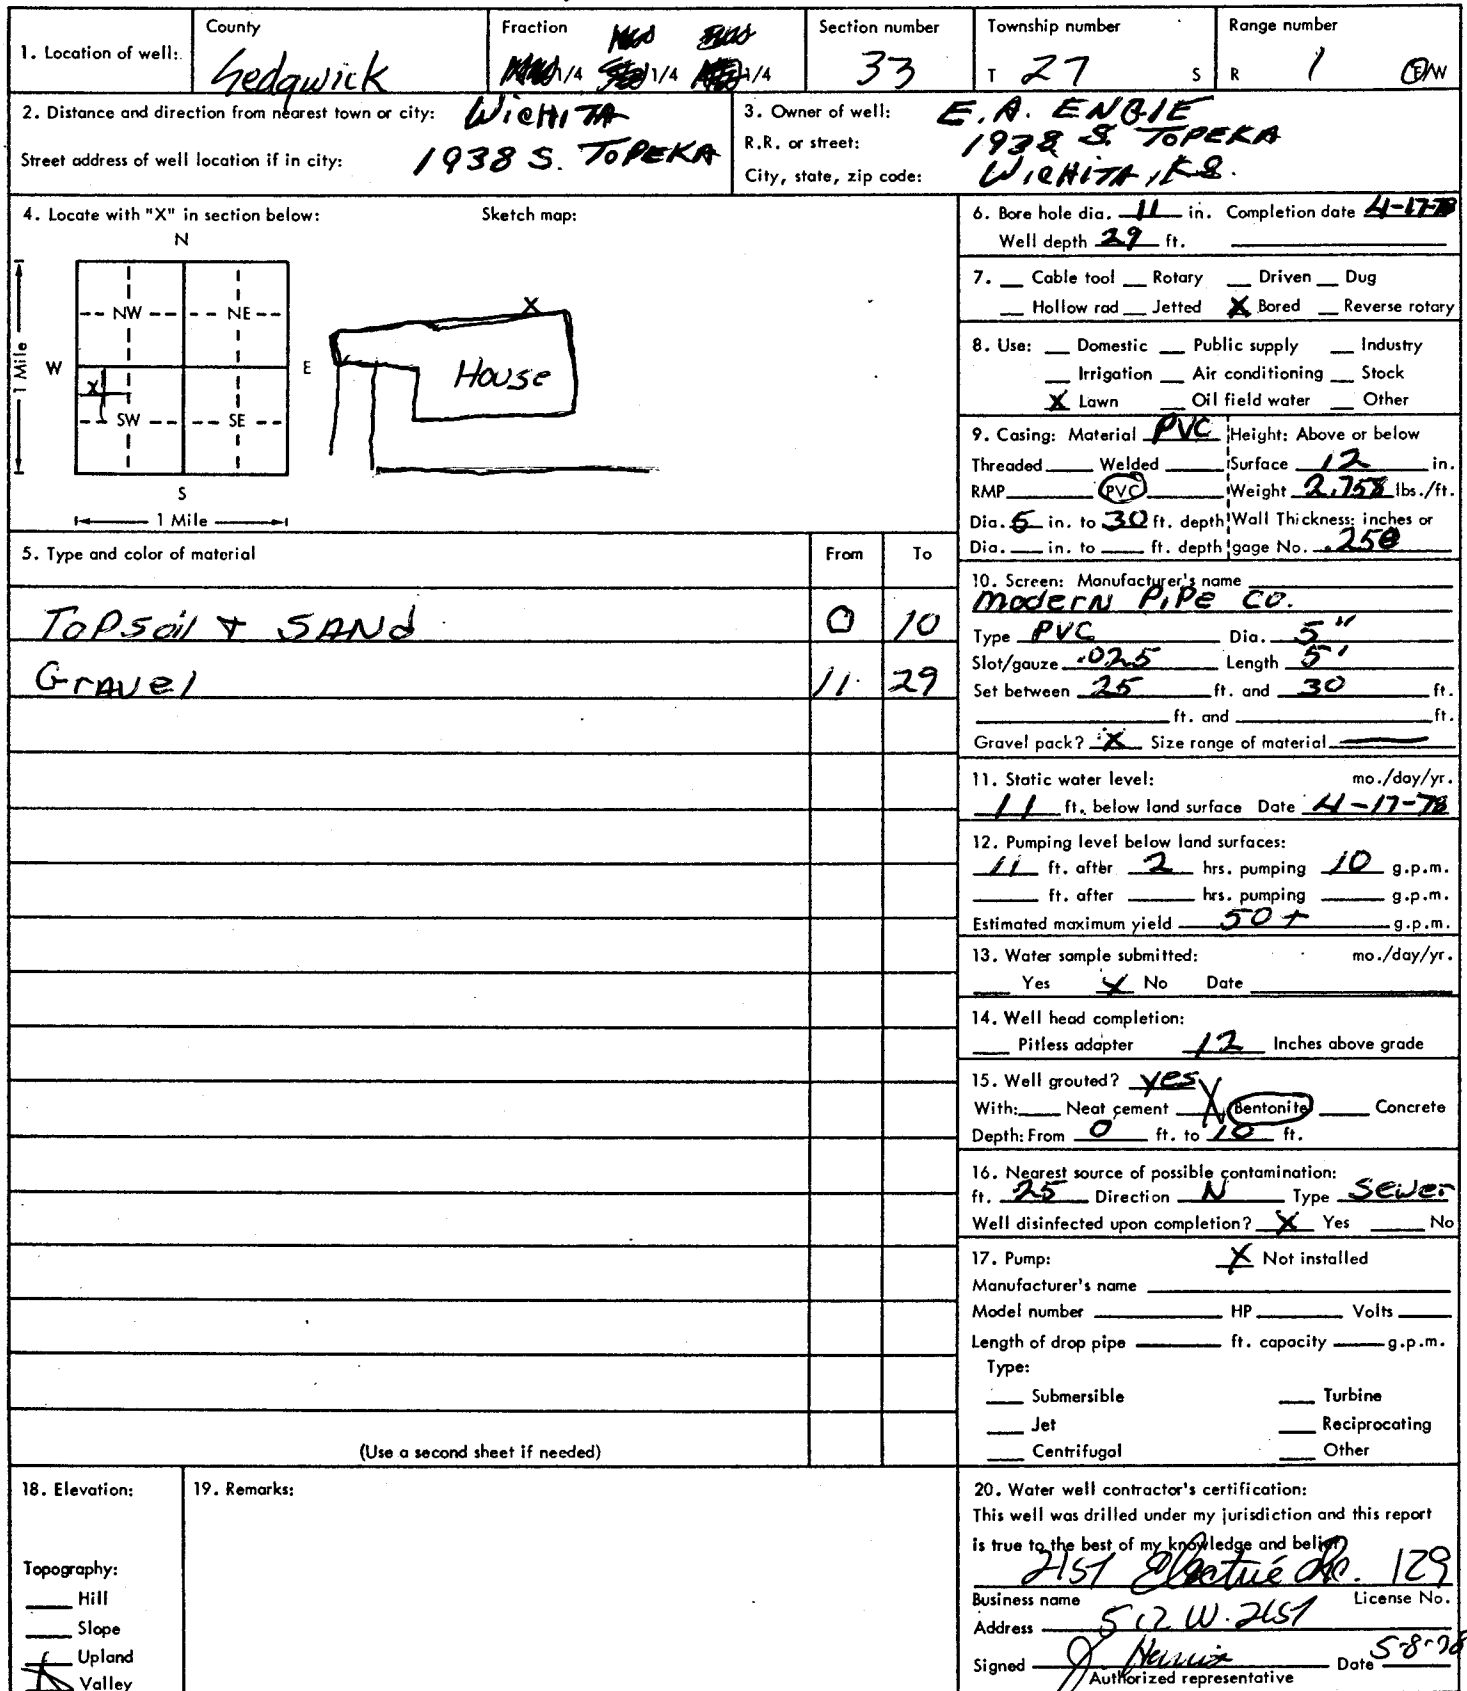 1. Location of well: County Sedgwick Fraction 1/4 1/4 1/4 Section number 33 Township number T 27 S Range number R 1 E/W
2. Distance and direction from nearest town or city: WicHiTA
Street address of well location if in city: 1938 S. ToPEKA
3. Owner of well: E. A. ENGIE
R.R. or street: 1938 S. TOPEKA
City, state, zip code: WicHiTA, KS.
4. Locate with "X" in section below: Sketch map:
N
NW NE
W E
X
SW SE
S
1 Mile
1 Mile
X
House
5. Type and color of material From To
ToPsoil + SANd 0 10
GrAvel 11 29
(Use a second sheet if needed)
6. Bore hole dia. 11 in. Completion date 4-17-78
Well depth 29 ft.
7. Cable tool Rotary Driven Dug
Hollow rad Jetted X Bored Reverse rotary
8. Use: Domestic Public supply Industry
Irrigation Air conditioning Stock
X Lawn Oil field water Other
9. Casing: Material PVC Height: Above or below
Threaded Welded Surface 12 in.
RMP PVC Weight 2.758 lbs./ft.
Dia. 5 in. to 30 ft. depth Wall Thickness: inches or
Dia. in. to ft. depth gage No. .258
10. Screen: Manufacturer's name
modern PiPe co.
Type PVC Dia. 5"
Slot/gauze .025 Length 5'
Set between 25 ft. and 30 ft.
ft. and ft.
Gravel pack? X Size range of material
11. Static water level: mo./day/yr.
11 ft. below land surface Date 4-17-78
12. Pumping level below land surfaces:
11 ft. after 2 hrs. pumping 10 g.p.m.
ft. after hrs. pumping g.p.m.
Estimated maximum yield 50+ g.p.m.
13. Water sample submitted: mo./day/yr.
Yes X No Date
14. Well head completion:
Pitless adapter 12 Inches above grade
15. Well grouted? yes
With: Neat cement X Bentonite Concrete
Depth: From 0 ft. to 10 ft.
16. Nearest source of possible contamination:
ft. 25 Direction N Type Sewer
Well disinfected upon completion? X Yes No
17. Pump: X Not installed
Manufacturer's name
Model number HP Volts
Length of drop pipe ft. capacity g.p.m.
Type:
Submersible Turbine
Jet Reciprocating
Centrifugal Other
18. Elevation:
Topography:
Hill
Slope
Upland
Valley
19. Remarks:
20. Water well contractor's certification:
This well was drilled under my jurisdiction and this report
is true to the best of my knowledge and belief.
21st Electric 129
Business name License No.
Address 512 W. 21st
Signed J. Date 5-8-78
Authorized representative